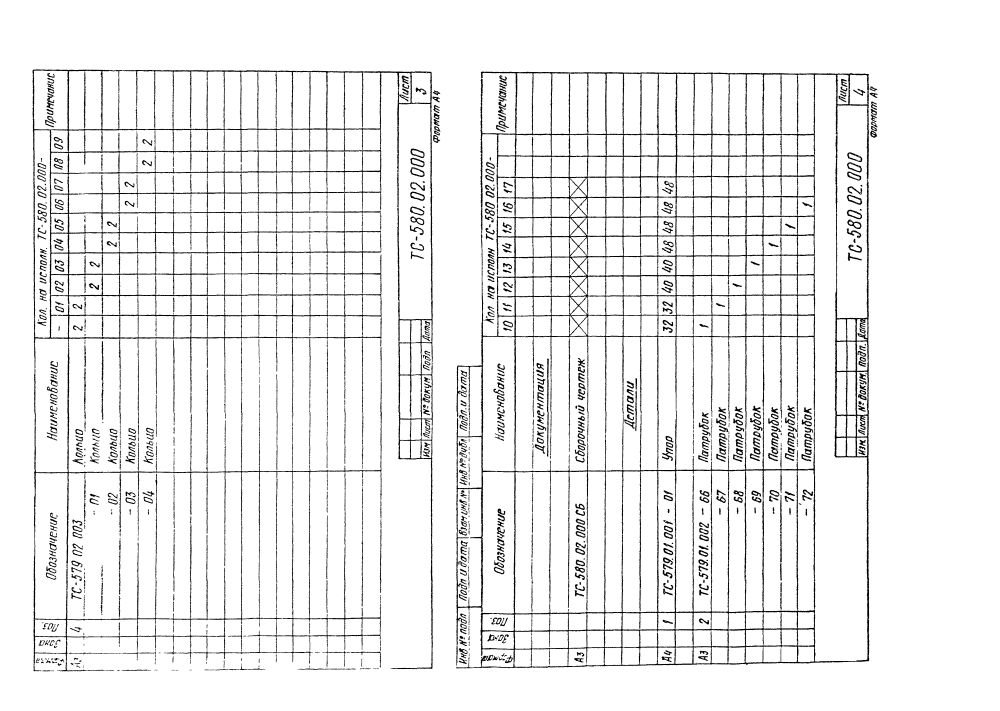 Формат Зона Поз. Обозначение Наименование Кол. на исполн. ТС-580.02.000- Примечание
- 01 02 03 04 05 06 07 08 09
А3 4 ТС-579.02.003 Кольцо 2 2
- 01 Кольцо 2 2
- 02 Кольцо 2 2
- 03 Кольцо 2 2
- 04 Кольцо 2 2
Изм Лист № докум. Подп. Дата
ТС-580.02.000
Лист
3
Формат А4
Инв № подл Подп и дата Взам инв № Инв № дубл Подп. и дата
Формат Зона Поз. Обозначение Наименование Кол на исполн ТС-580.02.000- Примечание
10 11 12 13 14 15 16 17
Документация
А3 ТС-580.02.000 СБ Сборочный чертеж
Детали
А4 1 ТС-579.01.001 - 01 Упор 32 32 40 40 48 48 48 48
А3 2 ТС-579.01.002 - 66 Патрубок 1
- 67 Патрубок 1
- 68 Патрубок 1
- 69 Патрубок 1
- 70 Патрубок 1
- 71 Патрубок 1
- 72 Патрубок 1
Изм Лист № докум. Подп. Дата
ТС-580.02.000
Лист
4
Формат А4